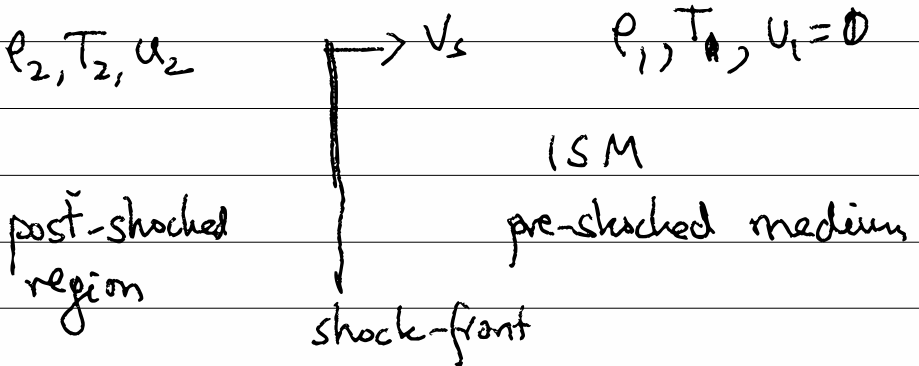 ρ₂, T₂, u₂ → Vₛ ρ₁, T₁, u₁ = 0
ISM
post-shocked pre-shocked medium
region
shock-front